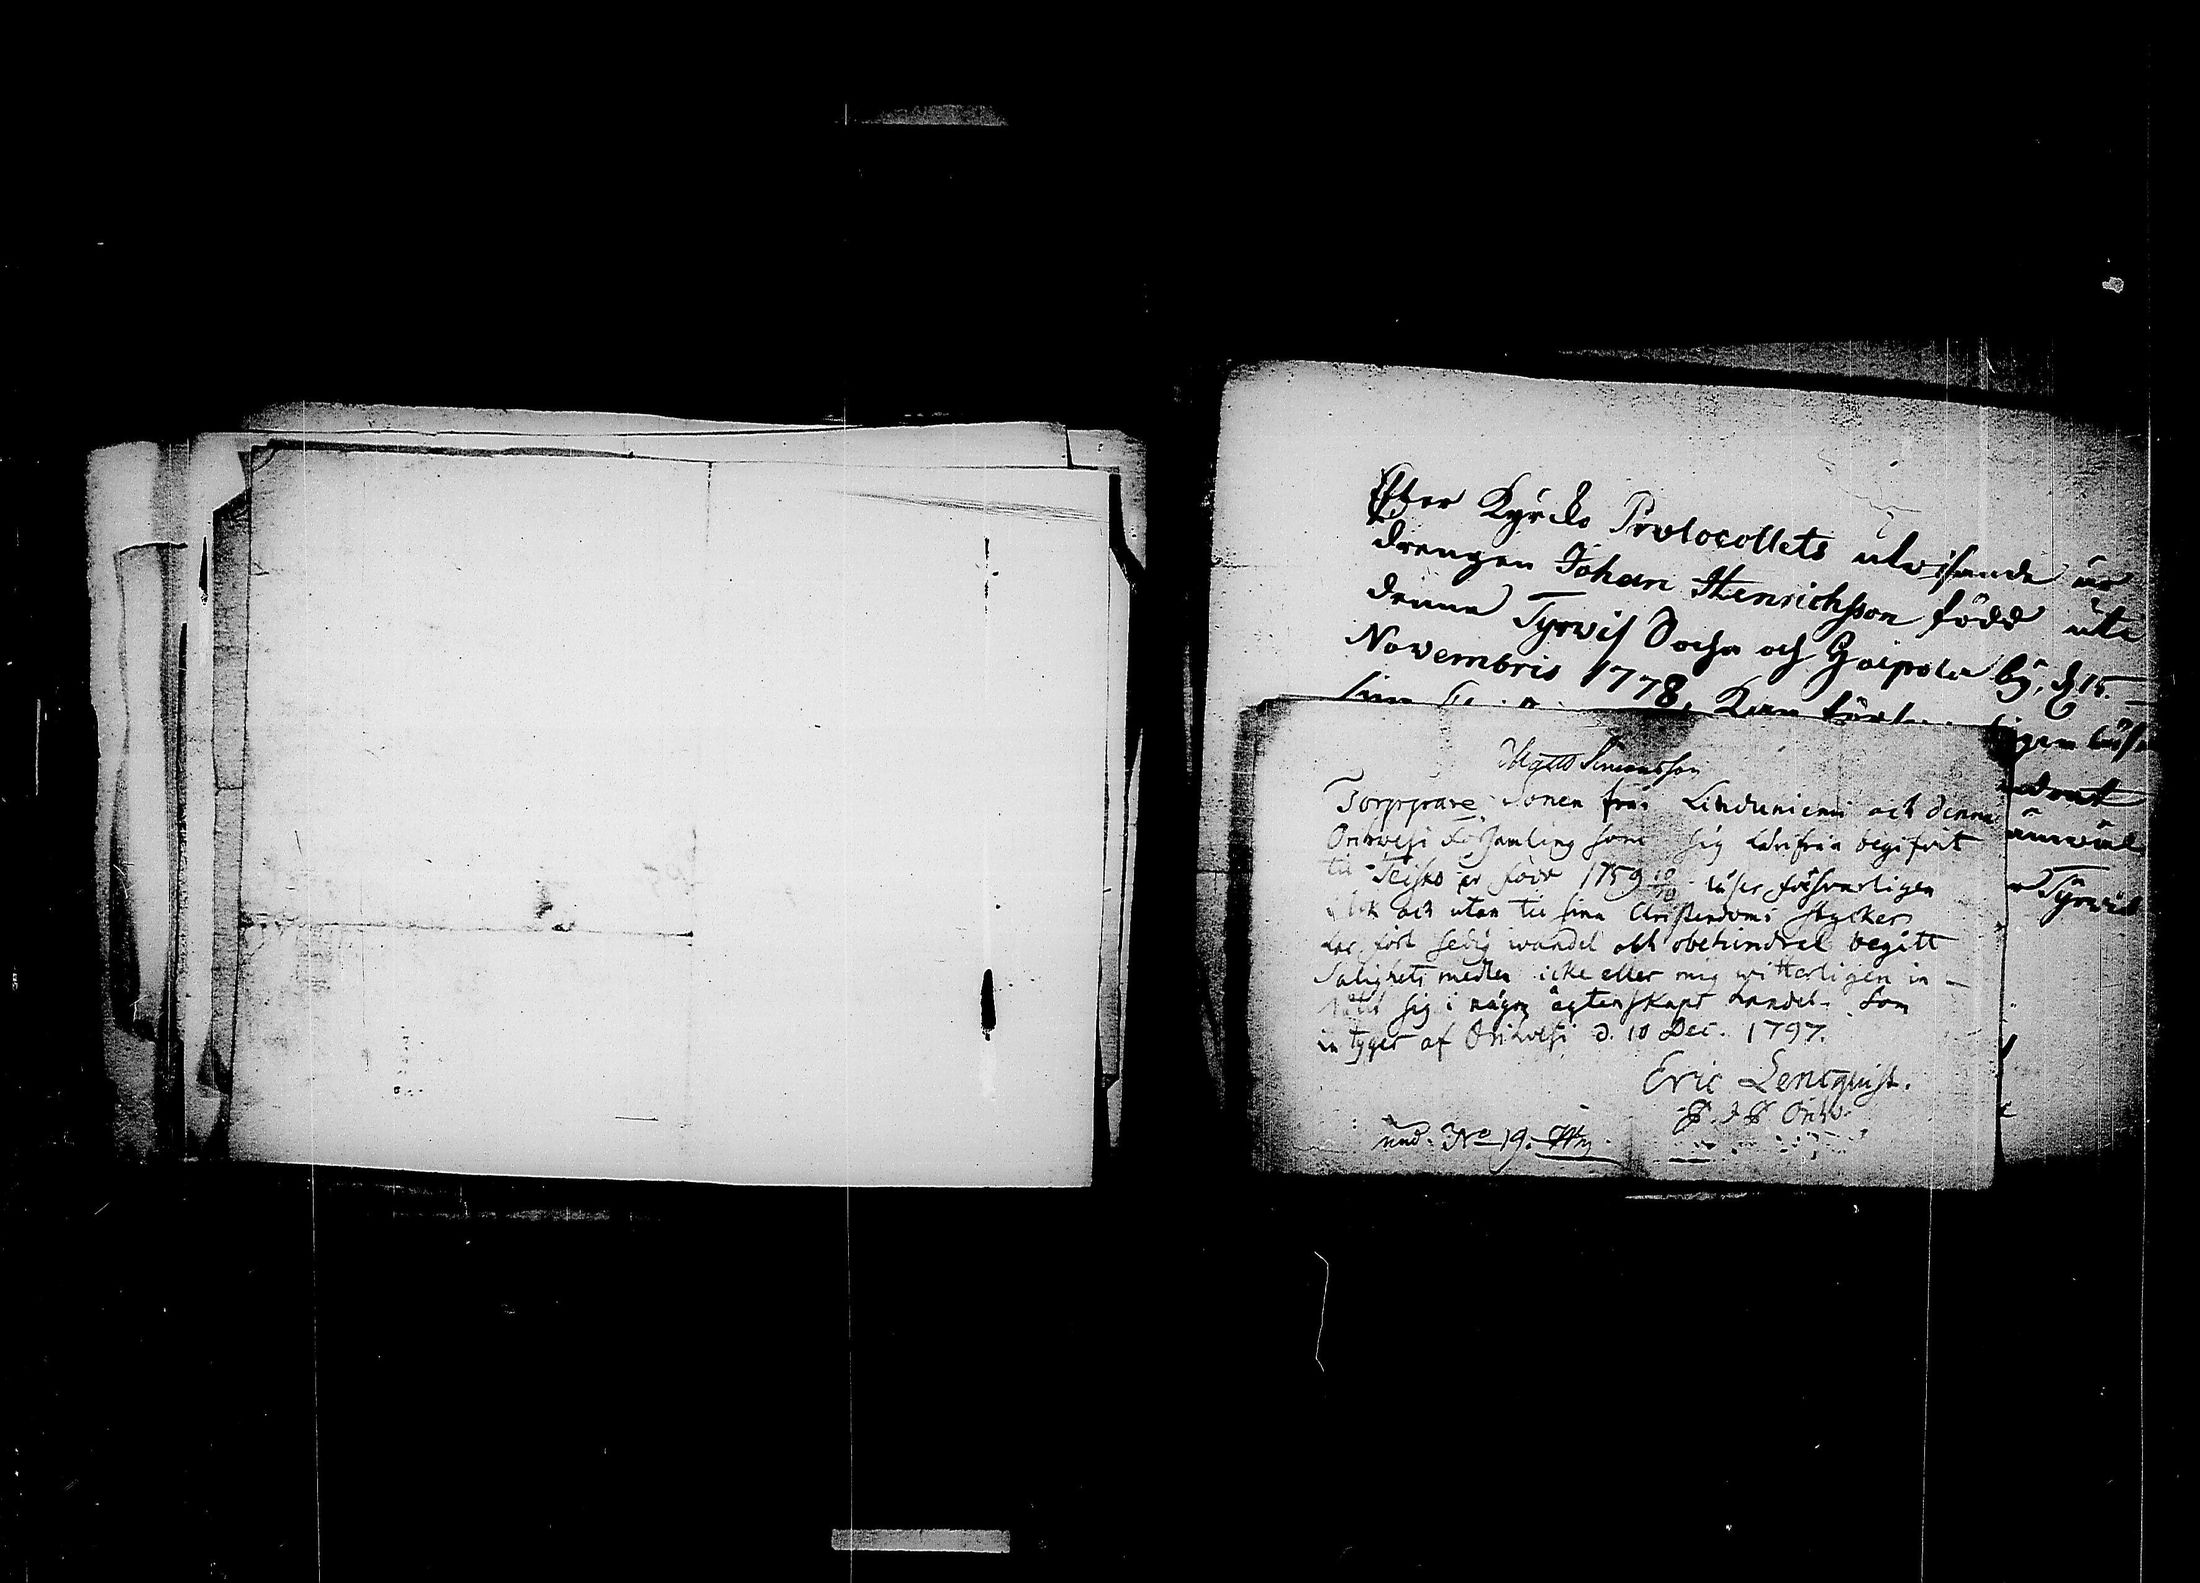 Efter Kyrcko Protocollets utwisande är
drengen Johan Henrichsson född uti
denna Tyrwis Sochn och Gaipola bÿ, d 15
Novembris 1778, Kan
Matts Simonsson
Torppare Sonen från Linduniemi och denna
Orihwesi Församling som sig härifrån begifvit
til Teisko är född 1759 10/10 läser försvarligen
i bok och utan til sina Christendoms stycker
har fört sedig wandel och obehindrat begått
Salighets medlen icke eller mig witterligen in-
låtit sig i någon ägtenskaps handel. Som
intygar af Orihwesi d. 10 Dec. 1797.
Eric Lencqvist.
und. No 19.
Tyrwis